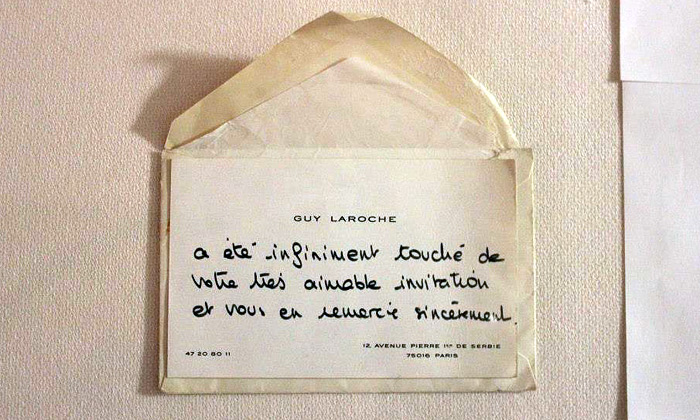 GUY LAROCHE
a été infiniment touché de
votre très aimable invitation
et vous en remercie sincèrement.
12, AVENUE PIERRE 1ER DE SERBIE
47 20 80 11
75016 PARIS